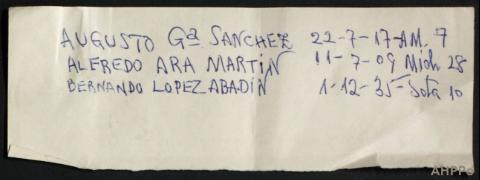 AUGUSTO Gª SANCHEZ 22-7-17-AM. 7
ALFREDO ARA MARTÍN 11-7-09 Mich 28
BERNANDO LOPEZ ABADÍN 1-12-35-Sota 10
AHPPo